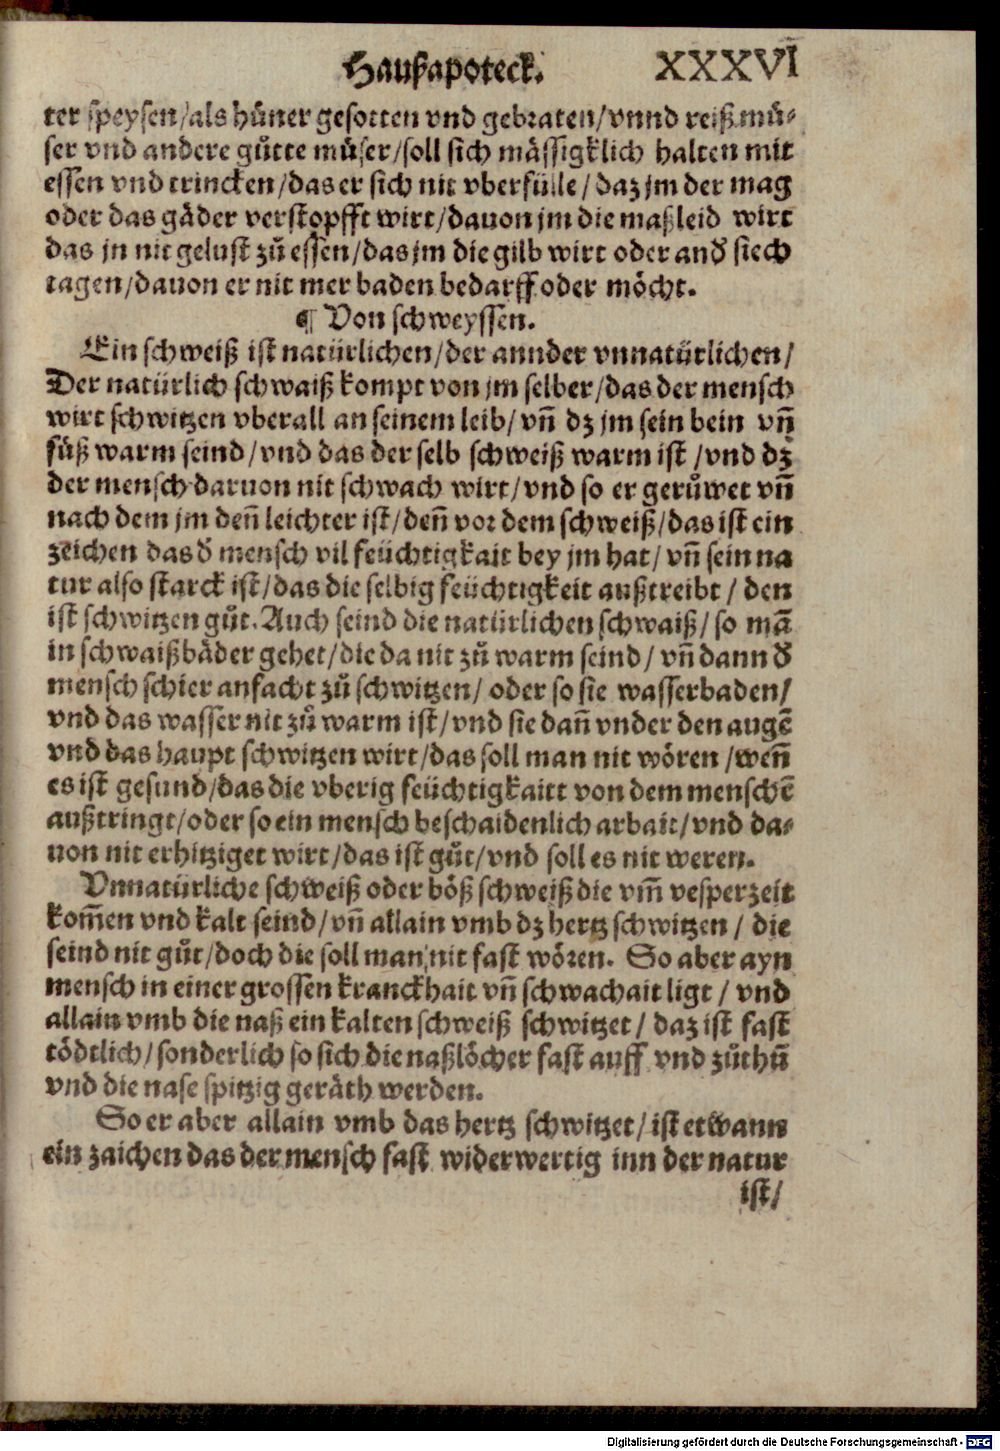 Haußapoteck. XXXVI
ter speysen/als hůner gesotten vnd gebraten/vnnd reiß mů⸗
ser vnd andere gůtte můser/soll sich mässigklich halten mit
essen vnd trincken/das er sich nit vberfülle/daz jm der mag
oder das gäder verstopfft wirt/dauon jm die maßleid wirt
das jn nit gelust zů essen/das jm die gilb wirt oder and̕ siech
tagen/dauon er nit mer baden bedarff oder möcht.
¶ Von schweyssen.
Ein schweiß ist natürlichen/der annder vnnatürlichen/
Der natürlich schwaiß kompt von jm selber/das der mensch
wirt schwitzen vberall an seinem leib/vñ dz jm sein bein vñ
füß warm seind/vnd das der selb schweiß warm ist/vnd dz
der mensch daruon nit schwach wirt/vnd so er gerůwet vñ
nach dem jm deñ leichter ist/deñ vor dem schweiß/das ist ein
zeichen das d̕ mensch vil feüchtigkait bey jm hat/vñ sein na
tur also starck ist/das die selbig feüchtigkeit außtreibt/den
ist schwitzen gůt. Auch seind die natürlichen schwaiß/so mā
in schwaißbäder gehet/die da nit zů warm seind/vñ dann d̕
mensch schier anfacht zů schwitzen/oder so sie wasserbaden/
vnd das wasser nit zů warm ist/vnd sie dañ vnder den augē
vnd das haupt schwitzen wirt/das soll man nit wören/weñ
es ist gesund/das die vberig feüchtigkaitt von dem menschē
außtringt/oder so ein mensch beschaidenlich arbait/vnd da⸗
uon nit erhitziget wirt/das ist gůt/vnd soll es nit weren.
Vnnatürliche schweiß oder böß schweiß die vm̄ vesperzeit
kom̄en vnd kalt seind/vñ allain vmb dz hertz schwitzen/die
seind nit gůt/doch die soll man nit fast wören. So aber ayn
mensch in einer grossen kranckhait vñ schwachait ligt/vnd
allain vmb die naß ein kalten schweiß schwitzet/daz ist fast
tödtlich/sonderlich so sich die naßlöcher fast auff vnd zůthů̄
vnd die nase spitzig geräth werden.
So er aber allain vmb das hertz schwitzet/ist etwann
ein zaichen das der mensch fast widerwertig inn der natur
ist/
Digitalisierung gefördert durch die Deutsche Forschungsgemeinschaft - DFG